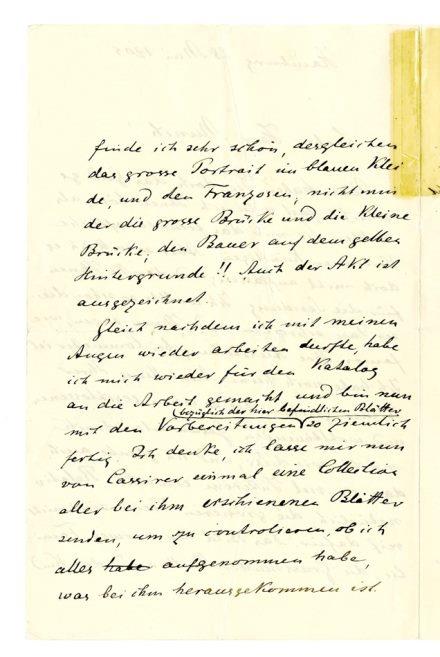 finde ich sehr schön, desgleichen
das grosse Portrait im blauen Klei
de, und den Franzosen, nicht min
der die grosse Brücke und die kleine
Brücke, den Bauer auf dem gelben
Hintergrunde!! Auch der Akt ist
ausgezeichnet.
Gleich nachdem ich mit meinen
Augen wieder arbeiten durfte, habe
ich mich wieder für den Katalog
an die Arbeit gemacht und bin nun
(bezüglich der hier befindlichen Blätter)
mit den Vorbereitungen so ziemlich
fertig. Ich denke, ich lasse mir nun
von Cassirer einmal eine Collection
aller bei ihm erschienenen Blätter
senden, um zu controlieren, ob ich
alles habe aufgenommen habe,
was bei ihm herausgekommen ist.